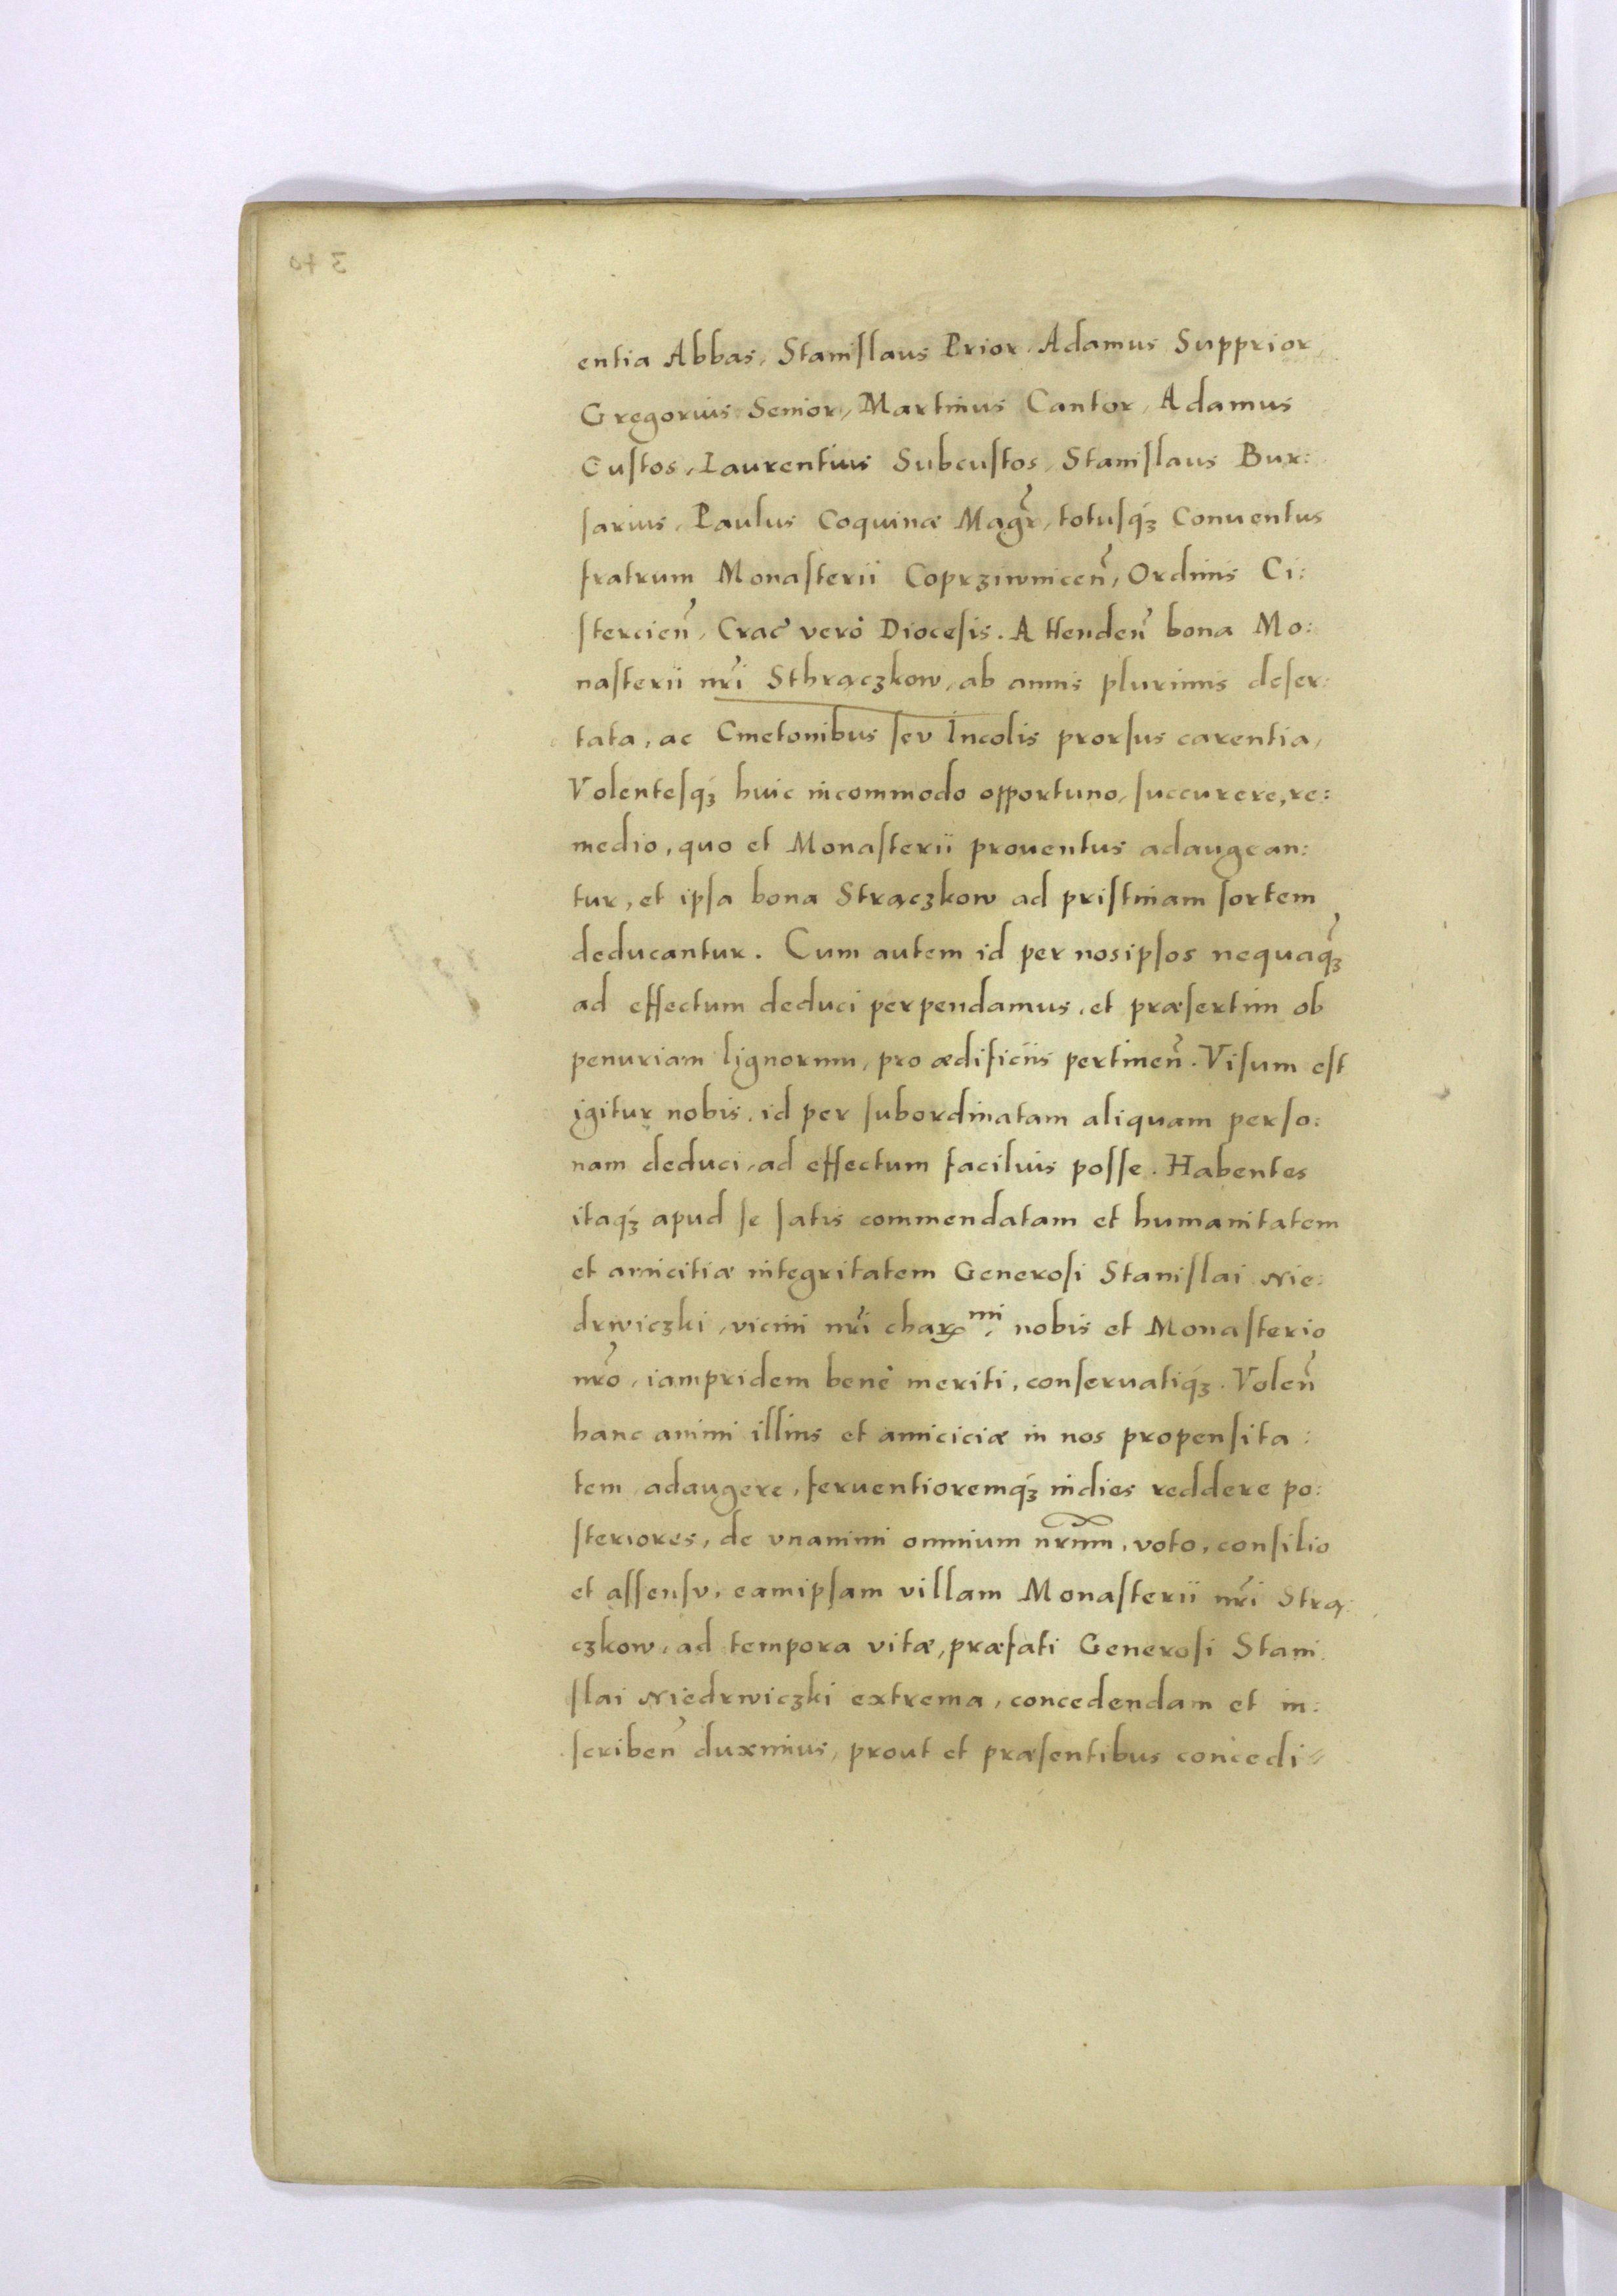 entia Abbas, Staniſlaus Prior, Adamus Supprior
Gregorius Senior, Martinus Cantor, Adamus
Cuſtos, Laurentius Subcuſtos, Staniſlaus Bur:
ſarius, Paulus Coquinæ Magr̃, totuſqꝫ Conuentus
fratrum Monaſterii Coprziwniceñ, Ordinis Ci:
ſtercieñ, Crac̃ verò Diocęſis. Attendeñ bona Mo:
naſterii nr̃i Sthrączkow, ab annis plurimis deſer:
tata, ac Cmetonibus ſev Incolis prorſus carentia,
Volenteſqꝫ huic incommodo opportuno, ſuccurere, re:
medio, quo et Monaſterii prouentus adaugean:
tur, et ipſa bona Strączkow ad priſtinam ſortem
deducantur. Cum autem id per nosipſos nequaqꝫ̃
ad effectum deduci perpendamus, et præſertim ob
penuriam lignorum, pro ædificiis pertineñ. Viſum eſt
igitur nobis, id per ſubordinatam aliquam perſo:
nam deduci, ad effectum facilius poſſe. Habentes
itaqꝫ apud ſe ſatis commendatam et humanitatem
et amicitiæ integritatem Generoſi Staniſlai Nie:
drwiczki, vicini nr̃i charꝭmi, nobis et Monaſterio
nr̃o, iampridem benè meriti, conſeruatiqꝫ. Voleñ
hanc animi illius et amiciciæ in nos propenſita:
tem adaugere, feruentioremqꝫ indies reddere po:
ſteriores, de vnanimi omnium nr̃um, voto, conſilio
et aſſenſv, eamipſam villam Monaſterii nr̃i Strą:
czkow, ad tempora vitæ, præfati Generoſi Stani
ſlai Niedrwiczki extrema, concedendam et in:
ſcribeñ duximus, prout et præſentibus concedi⸗